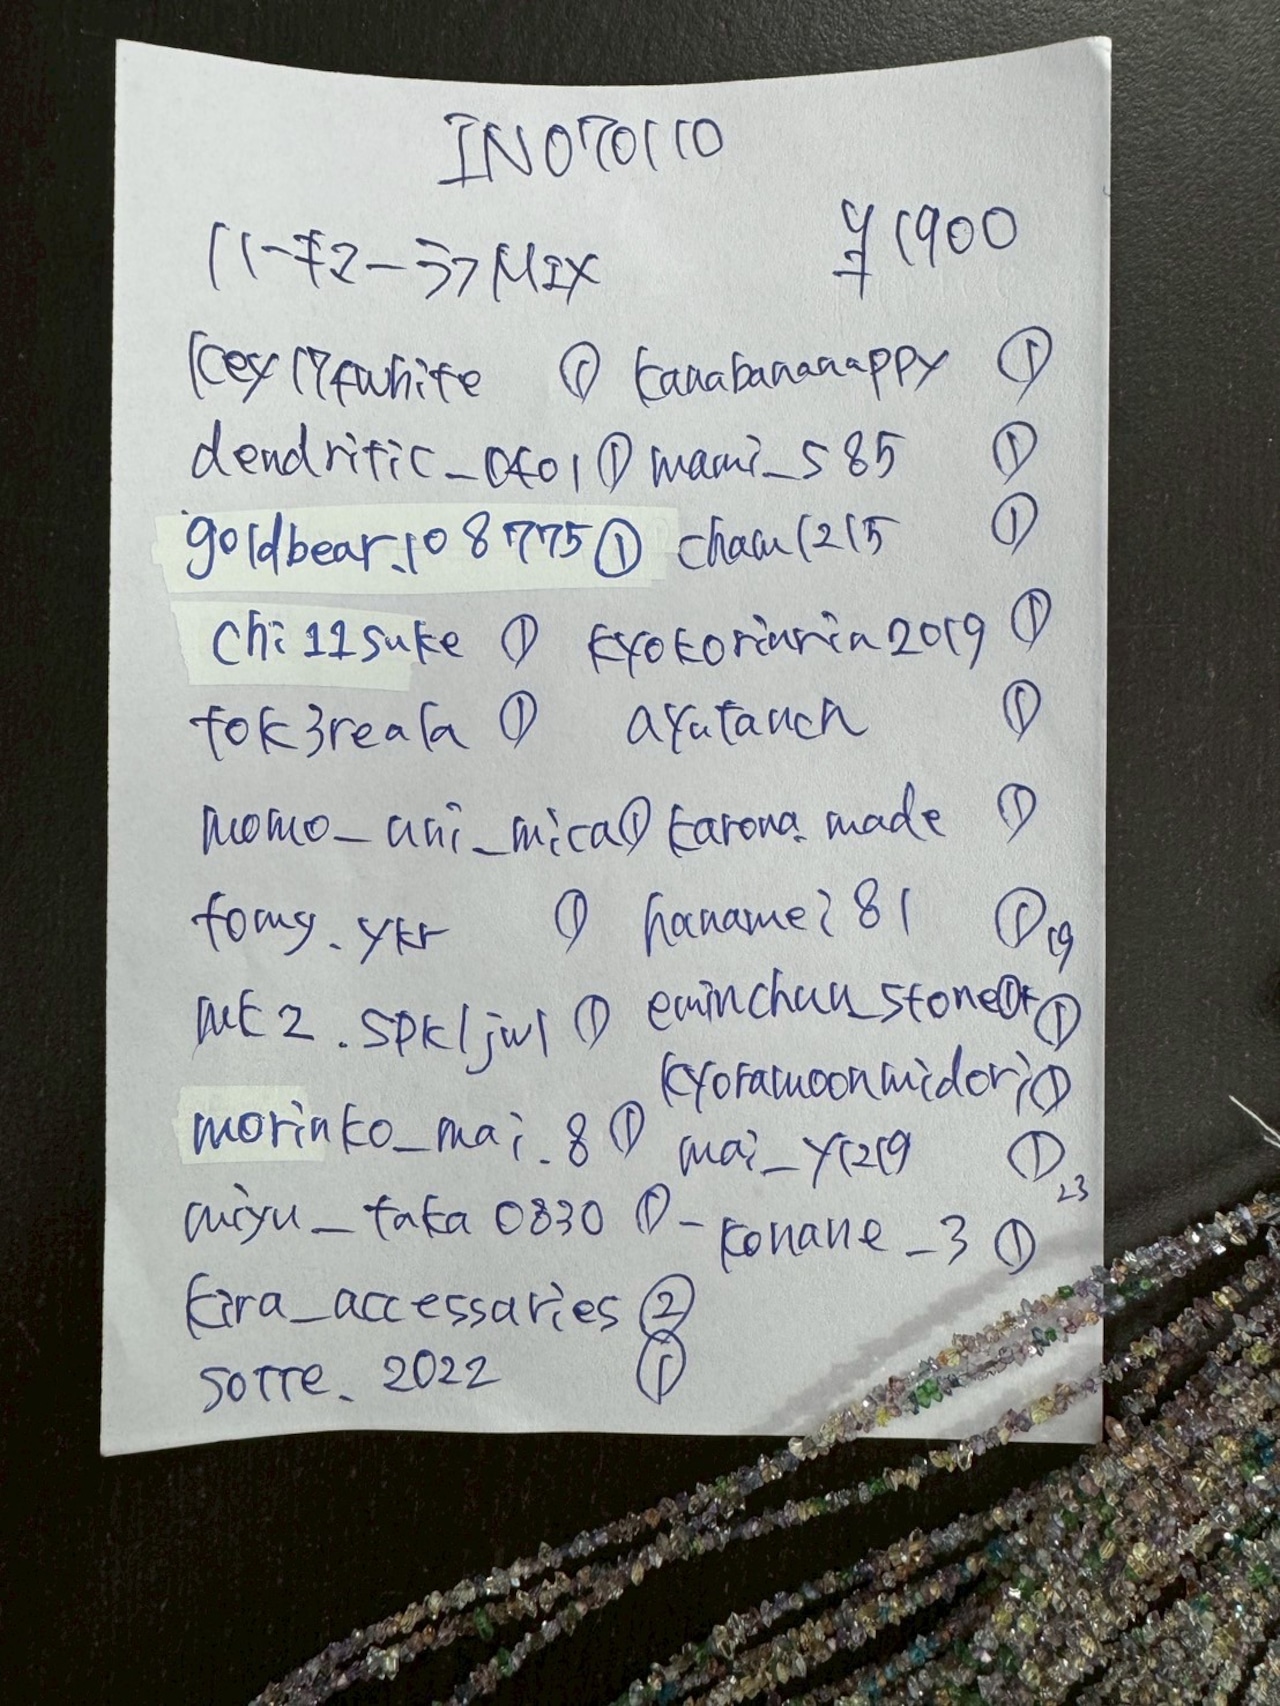 IN070110
ハーキマーラフMIX ¥1900
key17fwhite ① kanabananappy ①
dendritic_0401 ① mami_s85 ①
goldbear.108775 ① cham1215 ①
chi11suke ① kyokorinrin2019 ①
tok3reala ① ayutauch ①
momo_uni_mica ① karona.made ①
tomy.ykr ① haname281 ① 19
mk2.spkljwl ① eminchun_stone ①
morinko_mai.8 ① kyoramoonmidori ①
miyu_taka0830 ① mai_y1219 ① 23
kira_accessaries ② - konane_3 ①
sorre.2022 ①